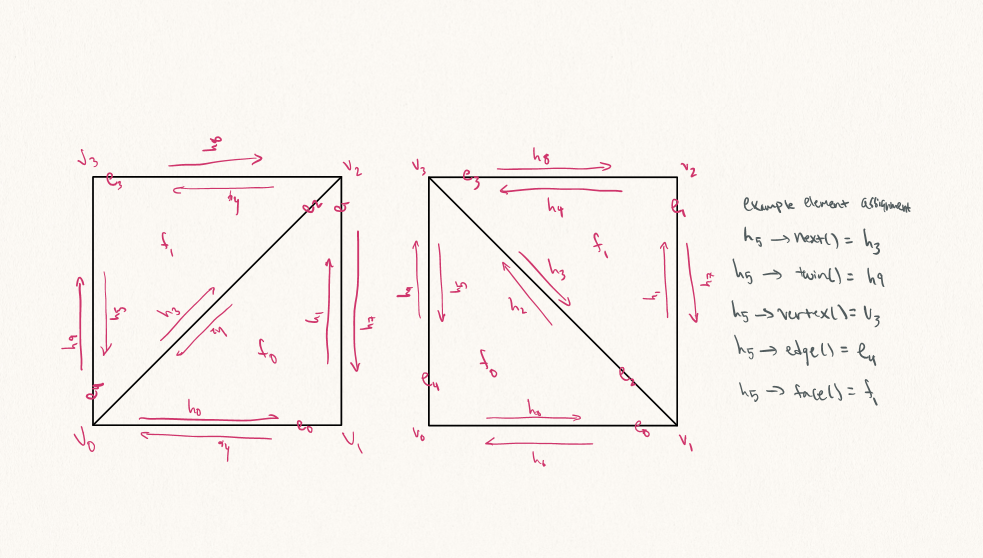 V3
h8
V2
e3
h4
e2
e1
f1
h3
h2
h1
h7
h9
h5
f0
e4
h0
e0
V0
h6
V1
V3
h8
V2
e3
h4
e1
f1
h3
h2
h1
h7
h9
h5
f0
e4
e2
h0
e0
V0
h6
V1
example element assignment
h5 → next() = h3
h5 → twin() = h9
h5 → vertex() = V3
h5 → edge() = e4
h5 → face() = f1